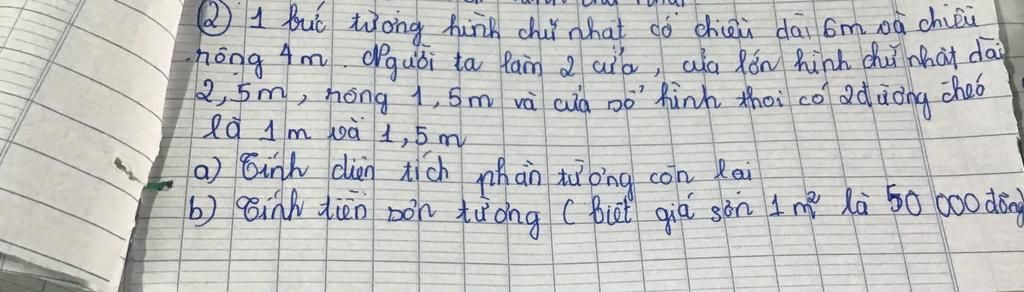 ② 1 bức tường hình chữ nhật có chiều dài 6m và chiều
rộng 4m. Người ta làm 2 cửa, cửa lớn hình chữ nhật dài
2,5m, rộng 1,5m và cửa sổ hình thoi có 2 đường chéo
là 1m và 1,5m
a) Tính diện tích phần tường còn lại
b) Tính tiền sơn tường (biết giá sơn 1 m² là 50 000 đồng